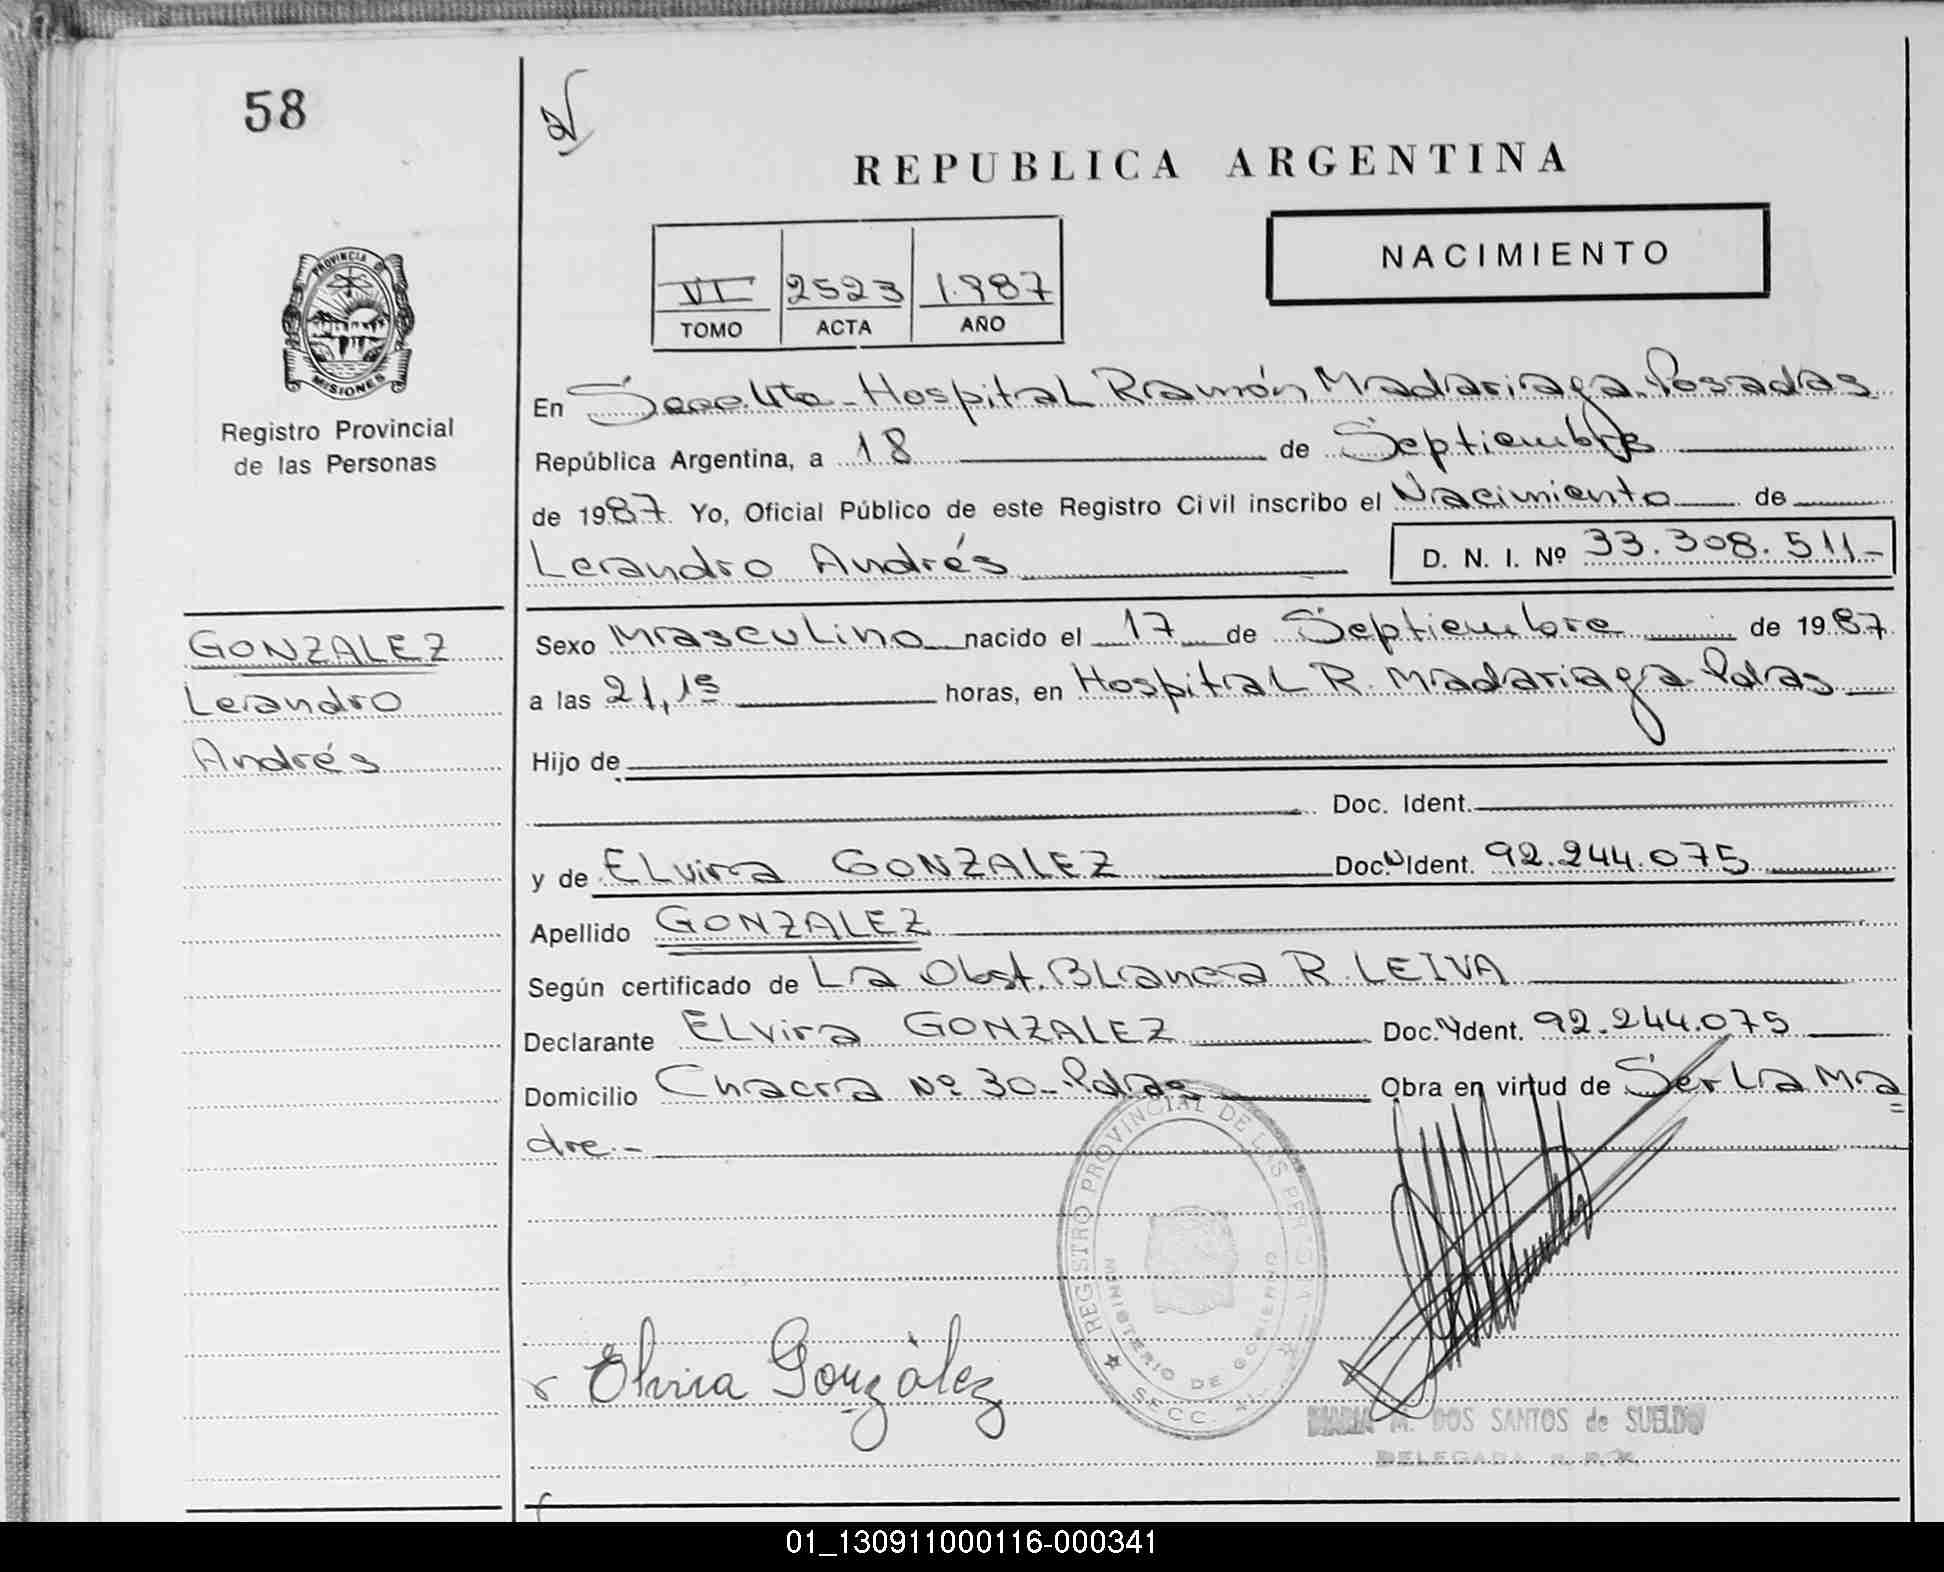 58
REPUBLICA ARGENTINA
NACIMIENTO
VI 2523 1.987
TOMO ACTA AÑO
PROVINCIA DE
MISIONES
Registro Provincial
de las Personas
En Secc. 4ta - Hospital Ramón Madariaga. Posadas
República Argentina, a 18 de Septiembre
de 1987. Yo, Oficial Público de este Registro Civil inscribo el Nacimiento de
Leandro Andrés D. N. I. Nº 33.308.511-
GONZALEZ
Leandro
Andrés
Sexo Masculino nacido el 17 de Septiembre de 1987
a las 21,15 horas, en Hospital R. Madariaga Pdas
Hijo de
Doc. Ident.
y de Elvira GONZALEZ Doc. Ident. 92.244.075
Apellido GONZALEZ
Según certificado de La Obst. Blanca R. LEIVA
Declarante Elvira GONZALEZ Doc. Ident. 92.244.075
Domicilio Chacra Nº 30 - Pdas Obra en virtud de Ser La Ma=
dre.-
REGISTRO PROVINCIAL DE LAS PERSONAS
MINISTERIO DE GOBIERNO
SECC.
Elvira González
MARIA M. DOS SANTOS de SUELDO
DELEGADA R. P. P.
01_130911000116-000341